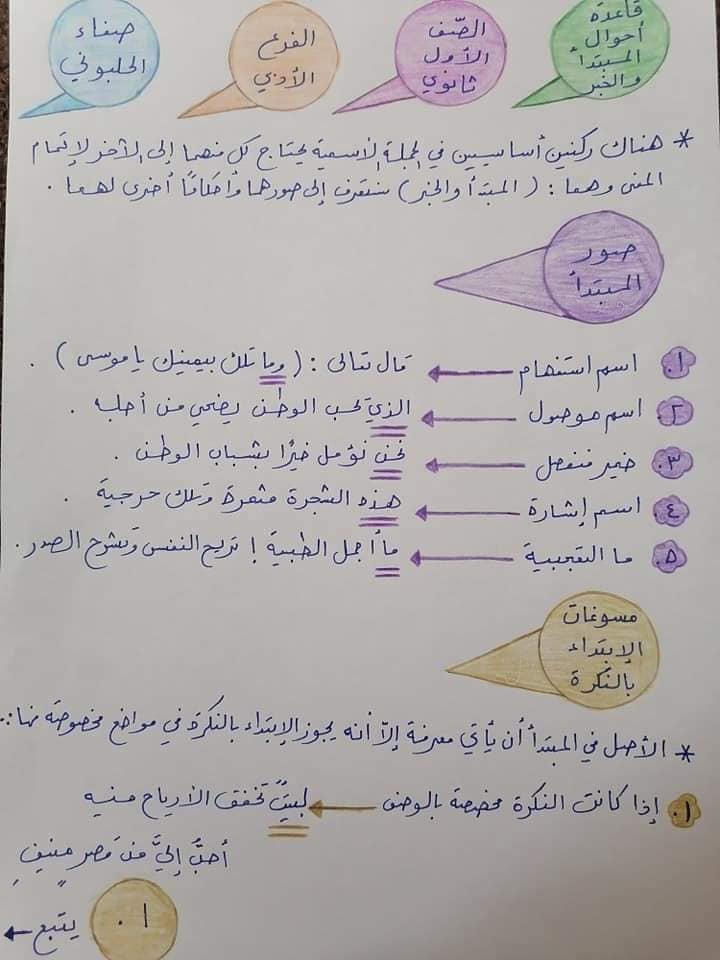 قاعدة
أحوال
المبتدأ
والخبر
الصّف
الأول
ثانوي
الفرع
الأدبي
صفاء
الحلبوني
* هناك ركنين أساسيين في الجملة الاسمية يحتاج كل منهما إلى الآخر لإتمام
المعنى وهما : ( المبتدأ والخبر ) سنتعرف إلى صورهما وأحكامًا أخرى لهما .
صور
المبتدأ
١. اسم استفهام ← قال تعالى : ( وما تلك بيمينك يا موسى ) .
٢. اسم موصول ← الذي يحب الوطن يضحي من أجله .
٣. ضمير منفصل ← نحن نؤمل خيرًا بشباب الوطن .
٤. اسم إشارة ← هذه الشجرة مثمرة وتلك حرجية .
٥. ما التعجبية ← ما أجمل الطبيعة ! تريح النفس وتشرح الصدر .
مسوغات
الإبتداء
بالنكرة
* الأصل في المبتدأ أن يأتي معرفة إلّا أنه يجوز الإبتداء بالنكرة في مواضع مخصوصة منها :.
١. إذا كانت النكرة مخصصة بالوصف ← لبيتٌ تخفق الأرياح فيه
أحبُّ إليَّ من قصرٍ منيفِ
١.
يتبع ←